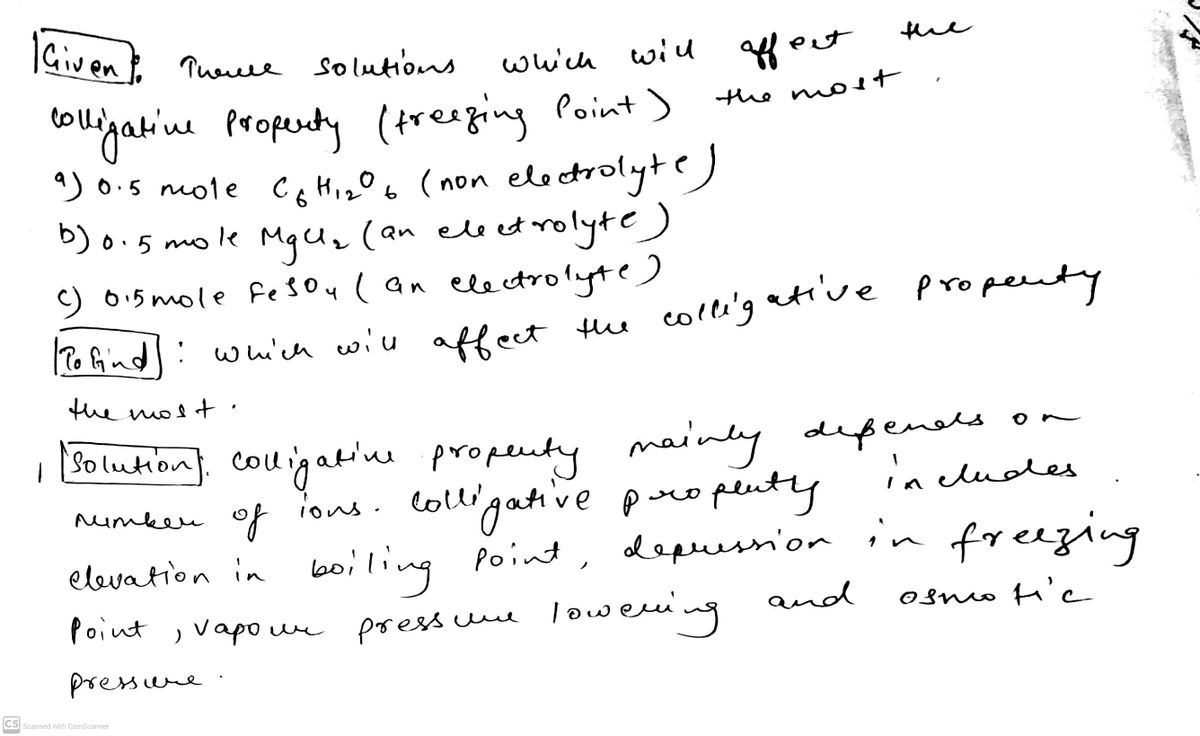 Given: Three solutions which will affect the
colligative Property (freezing Point) the most.
a) 0.5 mole C6H12O6 (non electrolyte)
b) 0.5 mole MgCl2 (an electrolyte)
c) 0.5 mole FeSO4 (an electrolyte)
To find: which will affect the colligative property
the most.
Solution: colligative property mainly depends on
number of ions. Colligative property includes
elevation in boiling Point, depression in freezing
Point, vapour pressure lowering and osmotic
pressure.
CS Scanned with CamScanner